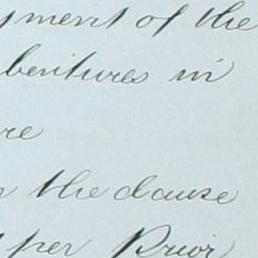 yment of the
bentures in
re
the clause
per Prior